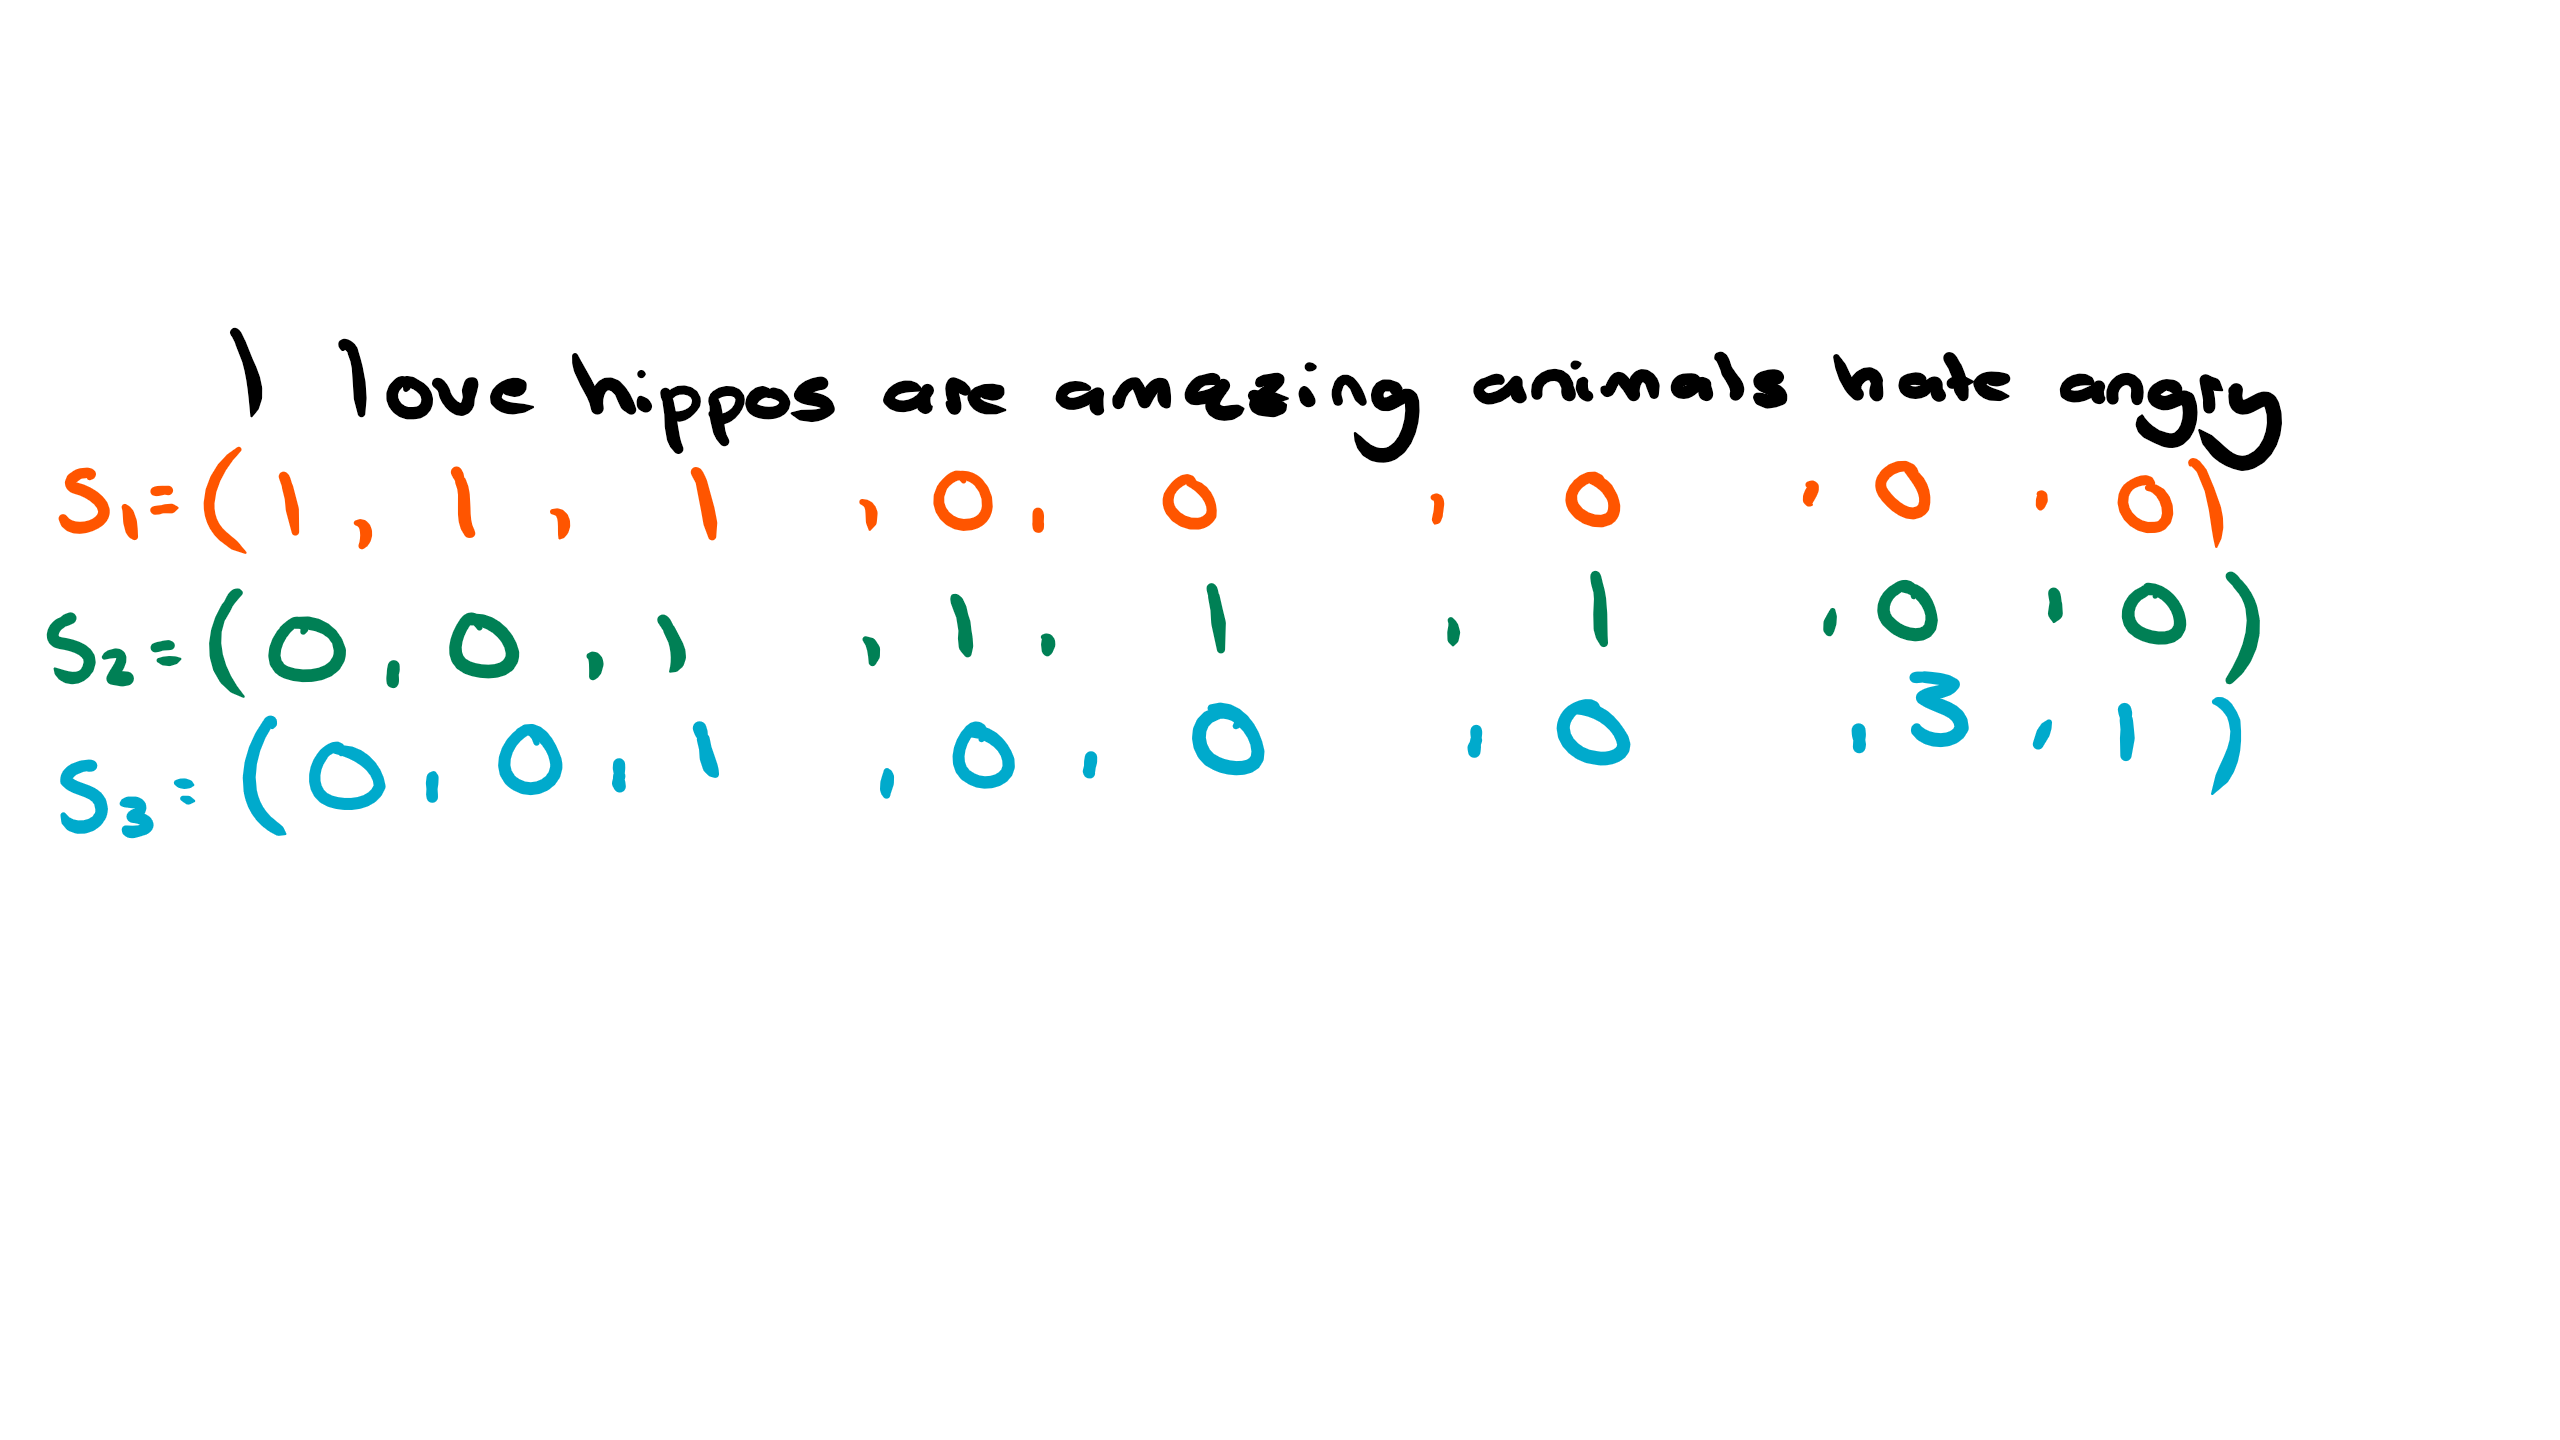 I love hippos are amazing animals hate angry
S1=(1,1,1,0,0,0,0,0)
S2=(0,0,1,1,1,1,0,0)
S3=(0,0,1,0,0,0,3,1)